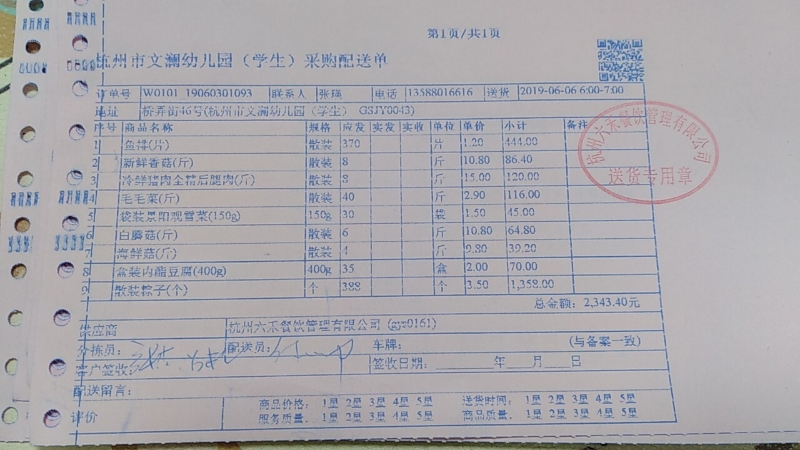 第1页/共1页
杭州市文澜幼儿园（学生）采购配送单
订单号 W0101 19060301093 联系人 张瑛 电话 13588016616 送货 2019-06-06 6:00-7:00
地址 桥弄街46号(杭州市文澜幼儿园（学生） GSJY0043)
序号 商品名称 规格 应发 实发 实收 单位 单价 小计 备注
1 鱼排(片) 散装 370 片 1.20 444.00
2 新鲜香菇(斤) 散装 8 斤 10.80 86.40
3 冷鲜猪肉全精后腿肉(斤) 散装 8 斤 15.00 120.00
4 毛毛菜(斤) 散装 40 斤 2.90 116.00
5 袋装景阳观雪菜(150g) 150g 30 袋 1.50 45.00
6 白蘑菇(斤) 散装 6 斤 10.80 64.80
7 海鲜菇(斤) 散装 4 斤 9.80 39.20
8 盒装内酯豆腐(400g) 400g 35 盒 2.00 70.00
9 散装粽子(个) 个 388 个 3.50 1,358.00
总金额: 2,343.40元
供应商 杭州六禾餐饮管理有限公司 (gyz0161)
分拣员: 配送员: 车牌: (与备案一致)
客户签收: 签收日期: 年 月 日
配送留言:
评价 商品价格: 1星 2星 3星 4星 5星 送货时间: 1星 2星 3星 4星 5星
服务质量: 1星 2星 3星 4星 5星 商品质量: 1星 2星 3星 4星 5星
杭州六禾餐饮管理有限公司
送货专用章